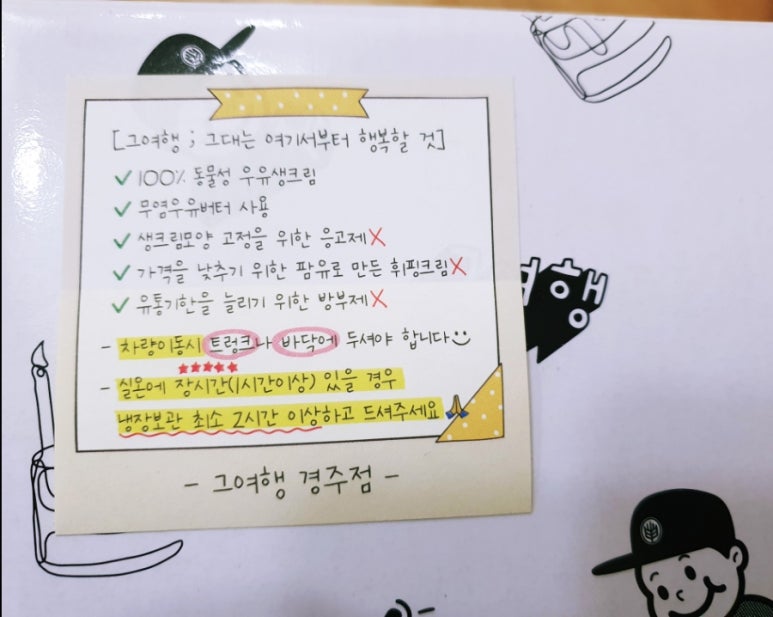 [그여행 ; 그대는 여기서부터 행복할 것]
✓ 100% 동물성 우유생크림
✓ 무염우유버터 사용
✓ 생크림모양 고정을 위한 응고제X
✓ 가격을 낮추기 위한 팜유로 만든 휘핑크림X
✓ 유통기한을 늘리기 위한 방부제X
- 차량이동시 트렁크나 바닥에 두셔야 합니다
★★★★★
- 실온에 장시간(1시간이상) 있을 경우
냉장보관 최소 2시간 이상하고 드셔주세요🙏
- 그여행 경주점 -
여행